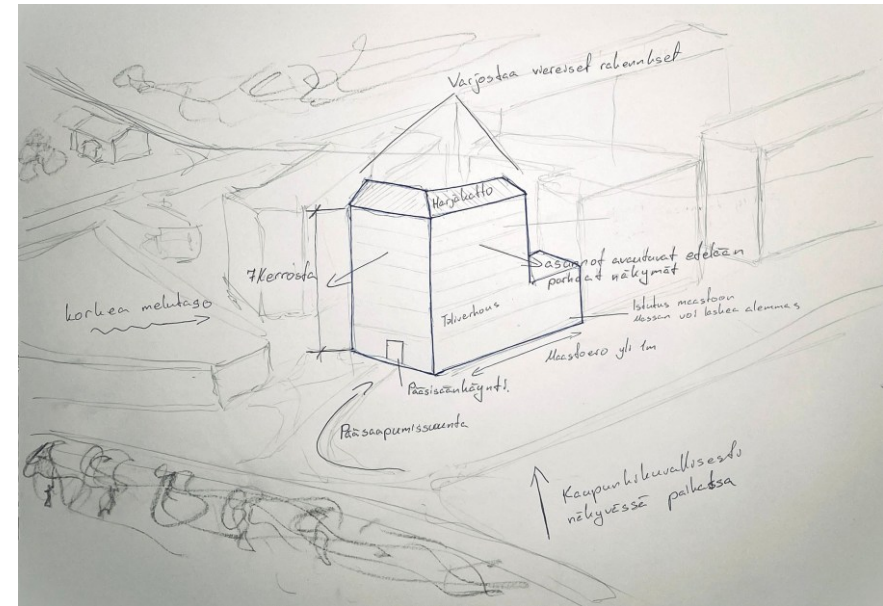 Varjostaa viereiset rakennukset
Harjakatto
7 Kerrosta
asunnot avautuvat etelään
parhaat näkymät
korkea melutaso
Tiiliverhous
Istutus maastoon
Massan voi laskea alemmas
Maastoero yli 1m
Pääsisäänkäynti
Pääsaapumissuunta
Kaupunkikuvallisesti
näkyvässä paikassa